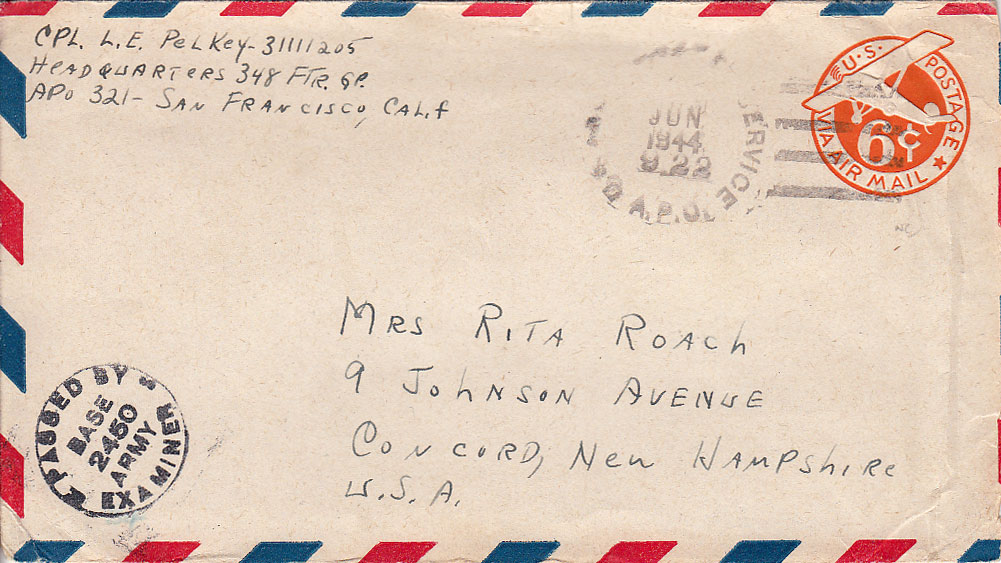 CPL. L.E. PelKey-31111205
HeADQUARTeRS 348 FTR. GP.
APO 321- SAN FRANCISCO, CAL.f
JUN
1944
9.22
SERVICE
A.P.O.
U.S. POSTAGE
6¢
VIA AIR MAIL
MRS RITA ROACh
9 JOhNSON AVENUE
CONCORD, New HAMPShiRe
U.S.A.
PASSED BY
BASE
2450
ARMY
EXAMINER